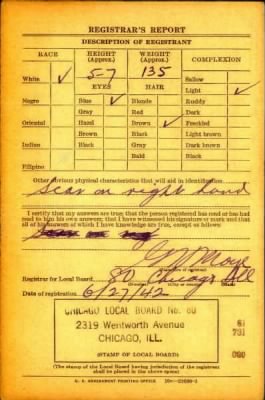 REGISTRAR'S REPORT
DESCRIPTION OF REGISTRANT
RACE HEIGHT (Approx.) WEIGHT (Approx.) COMPLEXION
White ✓ 5-7 135 Sallow
EYES HAIR Light ✓
Negro Blue ✓ Blonde Ruddy
Gray Red Dark
Oriental Hazel Brown ✓ Freckled
Brown Black Light brown
Indian Black Gray Dark brown
Bald Black
Filipino
Other obvious physical characteristics that will aid in identification
Scar on right hand
I certify that my answers are true; that the person registered has read or has had
read to him his own answers; that I have witnessed his signature or mark and that
all of his answers of which I have knowledge are true, except as follows:
Registrar for Local Board 80 Chicago Ill
Date of registration 6/27/42
CHICAGO LOCAL BOARD No. 80
2319 Wentworth Avenue
CHICAGO, ILL.
(STAMP OF LOCAL BOARD)
(The stamp of the Local Board having jurisdiction of the registrant
shall be placed in the above space)
U. S. GOVERNMENT PRINTING OFFICE